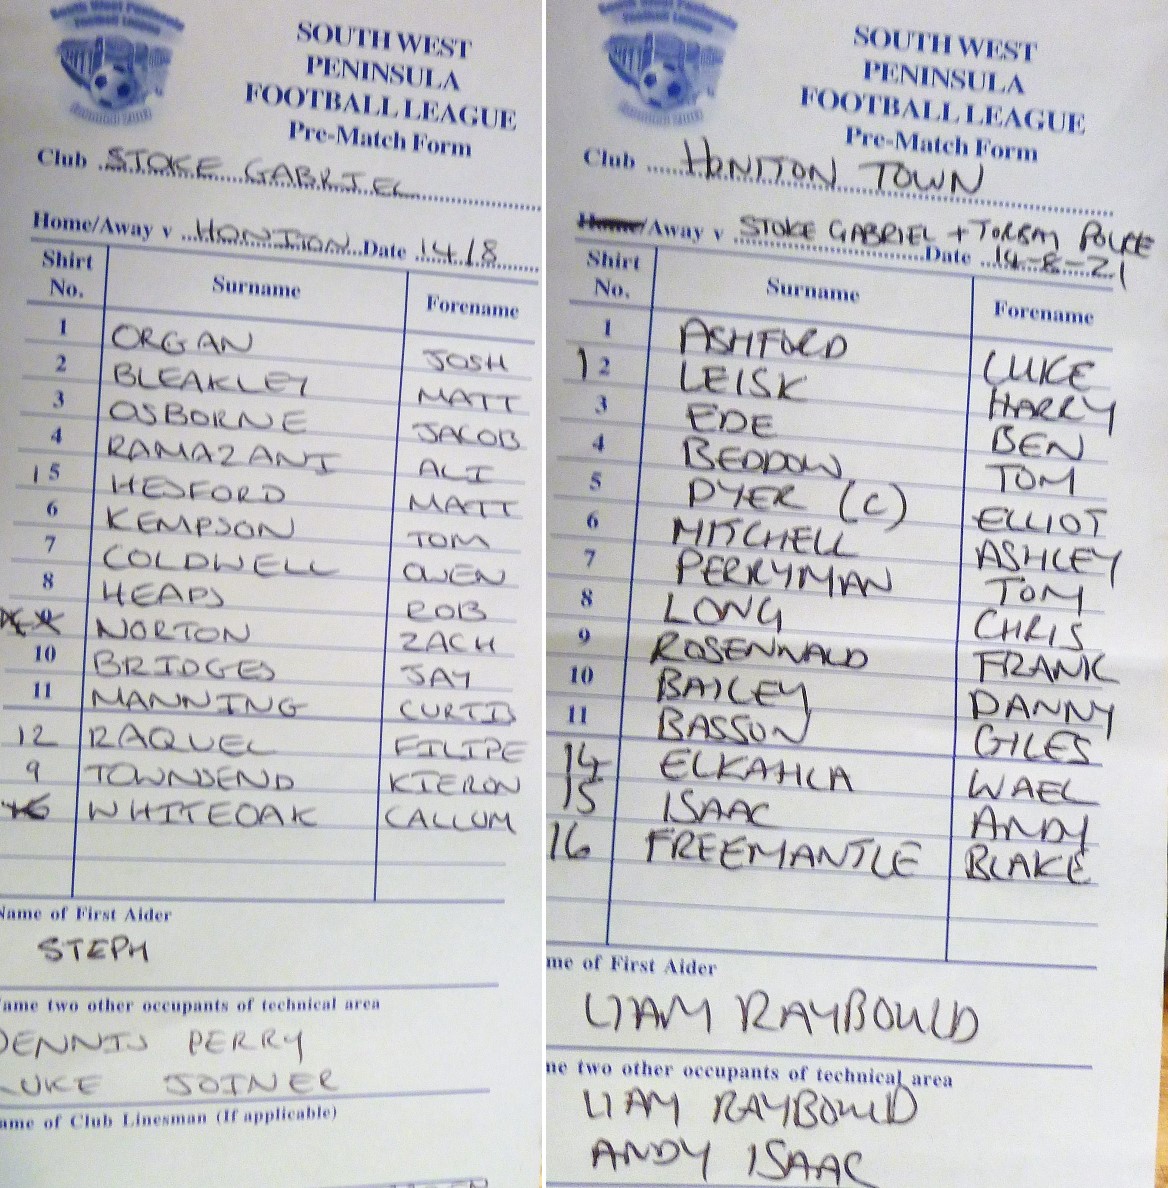 South West Peninsula
Football League
SOUTH WEST
PENINSULA
FOOTBALL LEAGUE
Pre-Match Form
Club STOKE GABRIEL
Home/Away v HONITON Date 14/8
Shirt No. Surname Forename
1 ORGAN JOSH
2 BLEAKLEY MATT
3 OSBORNE JACOB
4 RAMAZANI ALI
15 HESFORD MATT
6 KEMPSON TOM
7 COLDWELL OWEN
8 HEAPS ROB
NORTON ZACH
10 BRIDGES JAY
11 MANNING CURTIS
12 RAQUEL FILIPE
9 TOWNSEND KIERON
WHITEOAK CALLUM
Name of First Aider
STEPH
Name two other occupants of technical area
DENNIS PERRY
LUKE JOINER
Name of Club Linesman (If applicable)
South West Peninsula
Football League
SOUTH WEST
PENINSULA
FOOTBALL LEAGUE
Pre-Match Form
Club HONITON TOWN
Home/Away v STOKE GABRIEL + TORBAY POLICE
Date 14-8-21
Shirt No. Surname Forename
1 ASHFORD LUKE
12 LEISK HARRY
3 EDE BEN
4 BEDDOW TOM
5 DYER (C) ELLIOT
6 MITCHELL ASHLEY
7 PERRYMAN TOM
8 LONG CHRIS
9 ROSENWALD FRANK
10 BAILEY DANNY
11 BASSON GILES
14 ELKAHLA WAEL
15 ISAAC ANDY
16 FREEMANTLE BLAKE
me of First Aider
LIAM RAYBOULD
me two other occupants of technical area
LIAM RAYBOULD
ANDY ISAAC